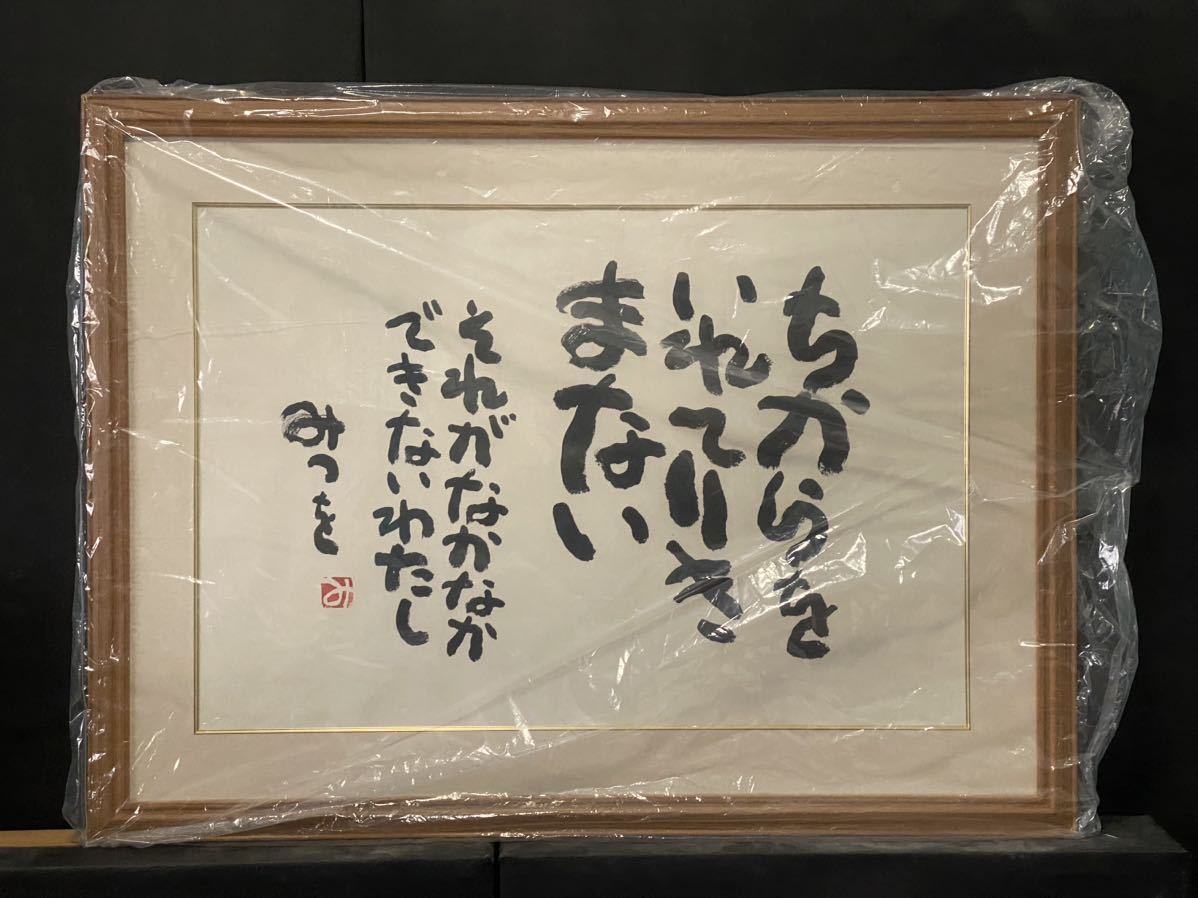 ちからを
いれてりき
まない
それがなかなか
できないわたし
みつを
み